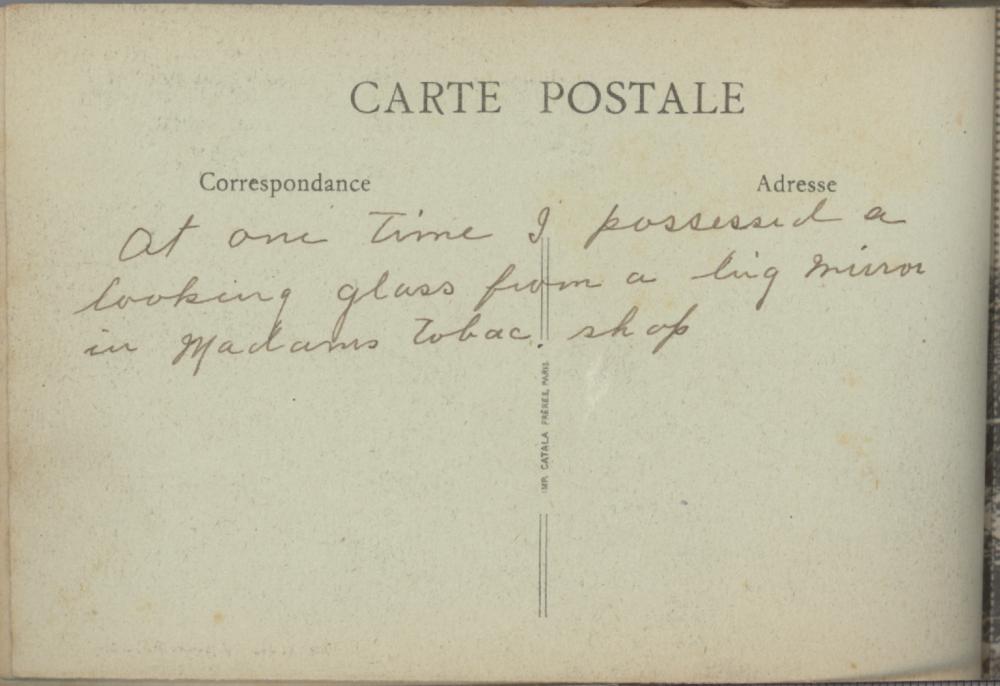 CARTE POSTALE
Correspondance
Adresse
At one time I possessed a
looking glass from a big mirror
in Madams Tobac. shop
IMP. CATALA FRÈRES, PARIS